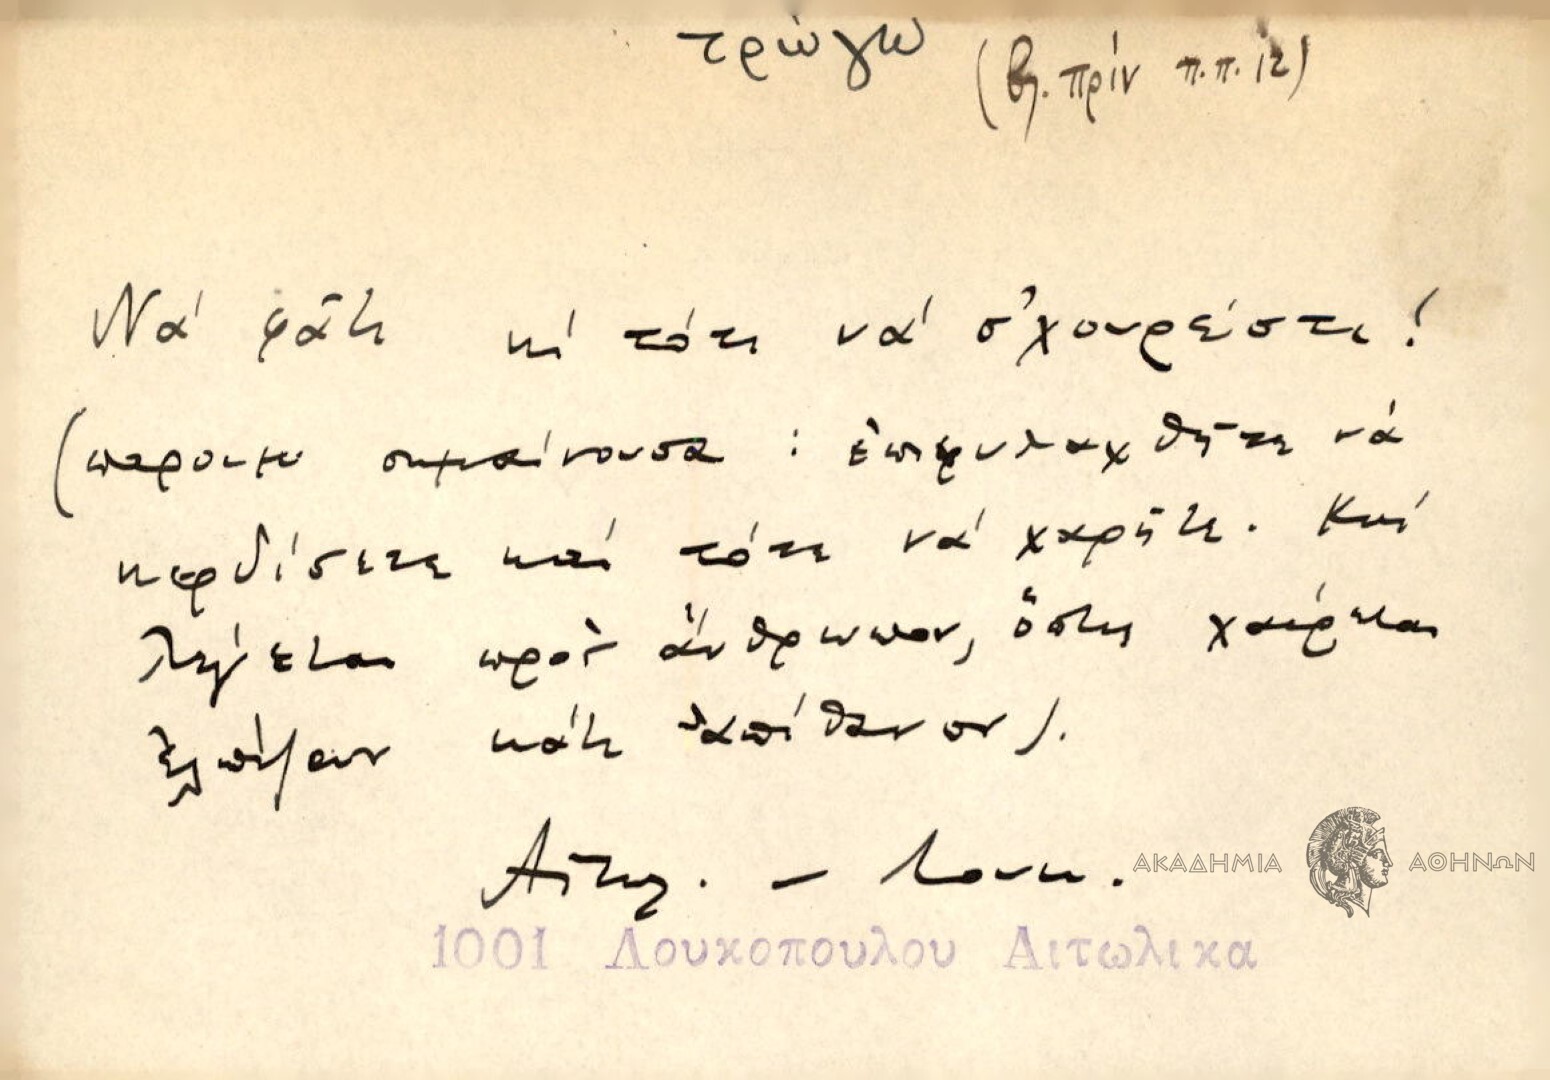 τρώγω (βλ. πρίν π.π. 12)
Νά φᾶτι κί τότι νά σ'χουρέστι!
(παροιμ σημαίνουσα : ἐπιφυλαχθῆτε νά
κερδίσετε καί τότε νά χαρῆτε. Καί
λέγεται πρός ἄνθρωπον, ὅστις χαίρεται
ἐλπίζων κάτι ἀπίθανον).
Αἰτωλ. – Λουκ.
1001 Λουκοπουλου Αιτωλικα
ΑΚΑΔΗΜΙΑ ΑΘΗΝΩΝ